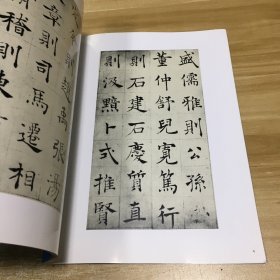 盛儒雅則公孫
董仲舒兒寬篤行
則石建石慶質直
則汲黯卜式推賢
則趙禹張湯
章則司馬遷相
稽則東